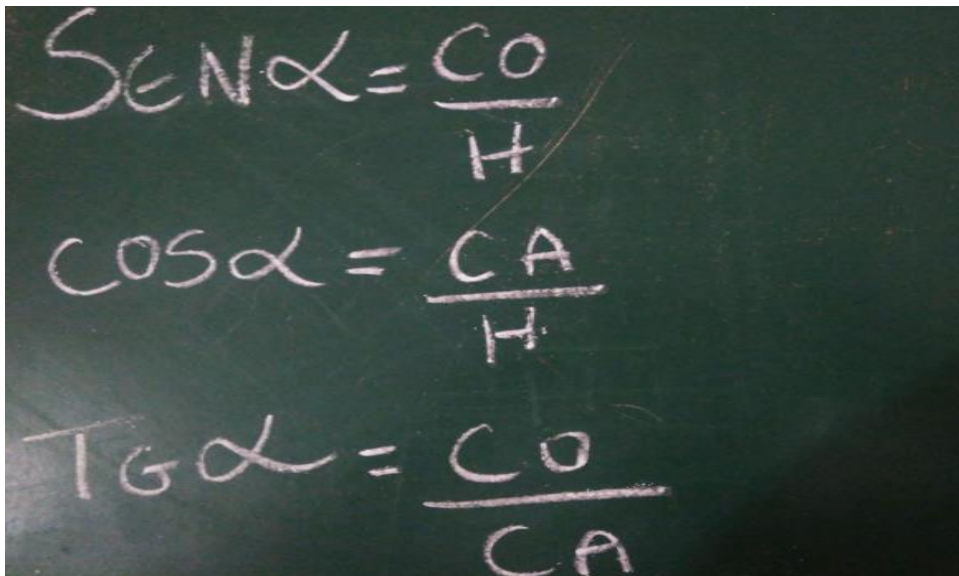 SENα = CO/H
COSα = CA/H
TGα = CO/CA